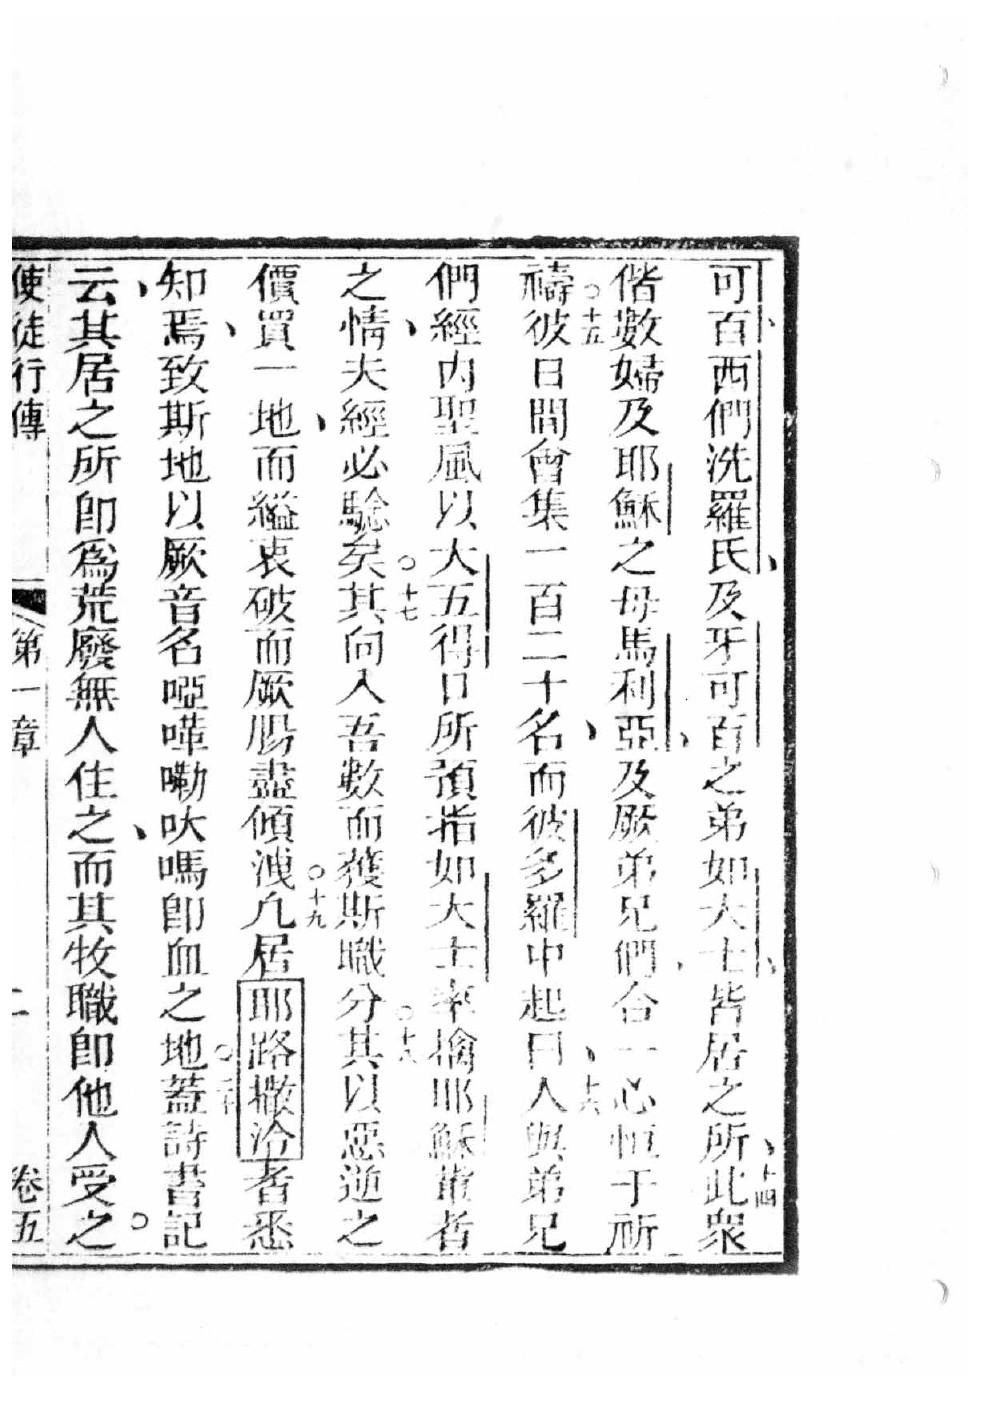 可百西們洗羅氏、及牙可百之弟如大士、皆居之所、十四此衆
偕數婦及耶穌之母馬利亞、及厥弟兄們、合一心恒于祈
禱○十五彼日間會集一百二十名、而彼多羅中起曰、十六人與弟兄
們經內聖風以大五得口所預指如大士率擒耶穌輩者
之情、夫經必騐矣○十七其向入吾數而獲斯職分○十八其以惡逆之
價買一地、而縊衷破而厥腸盡傾洩○十九凢居耶路撒冷者悉
知焉、致斯地以厥音名啞嘩嘞吠嗎卽血之地○二十蓋詩書記
云、其居之所卽爲荒廢無人住之、而其牧職卽他人受之○
使徒行傳 第一章 二 卷五